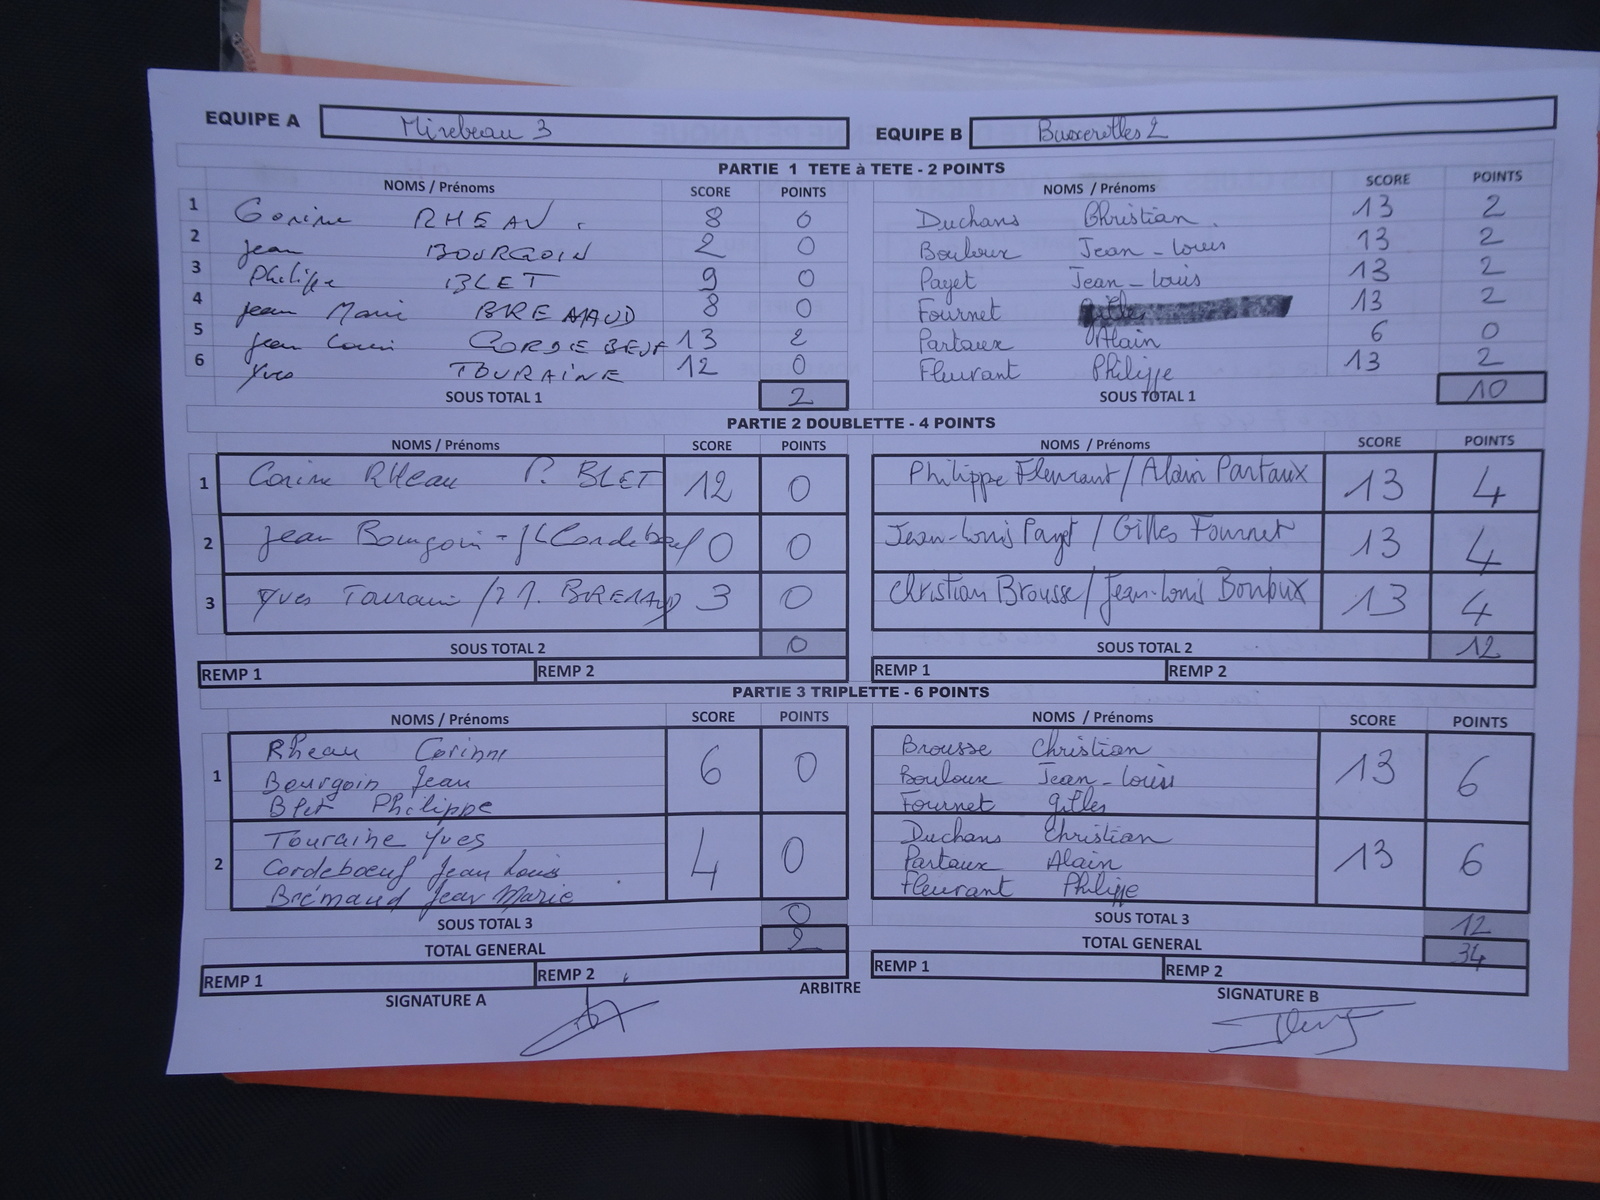 EQUIPE A Mirebeau 3 EQUIPE B Buxerolles 2
PARTIE 1 TETE à TETE - 2 POINTS
NOMS / Prénoms SCORE POINTS NOMS / Prénoms SCORE POINTS
1 Corine RHEAU 8 0 Duchans Christian 13 2
2 Jean BOURGOIN 2 0 Bouloux Jean-Louis 13 2
3 Philippe BLET 9 0 Payet Jean-Louis 13 2
4 Jean Marie BREMAUD 8 0 Fournet Gilles 13 2
5 Jean Louis CORDEBEUF 13 2 Partaux Alain 6 0
6 Yves TOURAINE 12 0 Fleurant Philippe 13 2
SOUS TOTAL 1 2 SOUS TOTAL 1 10
PARTIE 2 DOUBLETTE - 4 POINTS
NOMS / Prénoms SCORE POINTS NOMS / Prénoms SCORE POINTS
1 Corine RHeau P. BLET 12 0 Philippe Fleurant / Alain Partaux 13 4
2 Jean Bourgoin - JL Cordebeuf 0 0 Jean-Louis Payet / Gilles Fournet 13 4
3 Yves Touraine / J M. BREMAUD 3 0 Christian Brousse / Jean-Louis Bouloux 13 4
SOUS TOTAL 2 0 SOUS TOTAL 2 12
REMP 1 REMP 2 REMP 1 REMP 2
PARTIE 3 TRIPLETTE - 6 POINTS
NOMS / Prénoms SCORE POINTS NOMS / Prénoms SCORE POINTS
1 Rheau Corinne 6 0 Brousse Christian 13 6
Bourgoin Jean Bouloux Jean-Louis
Blet Philippe Fournet Gilles
2 Touraine Yves 4 0 Duchans Christian 13 6
Cordeboeuf Jean Louis Partaux Alain
Brémaud Jean Marie Fleurant Philippe
SOUS TOTAL 3 0 SOUS TOTAL 3 12
TOTAL GENERAL 2 TOTAL GENERAL 34
REMP 1 REMP 2 REMP 1 REMP 2
SIGNATURE A ARBITRE SIGNATURE B